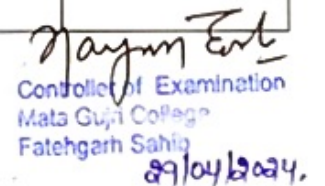 Controller of Examination
Mata Gujri College
Fatehgarh Sahib
29/04/2024.